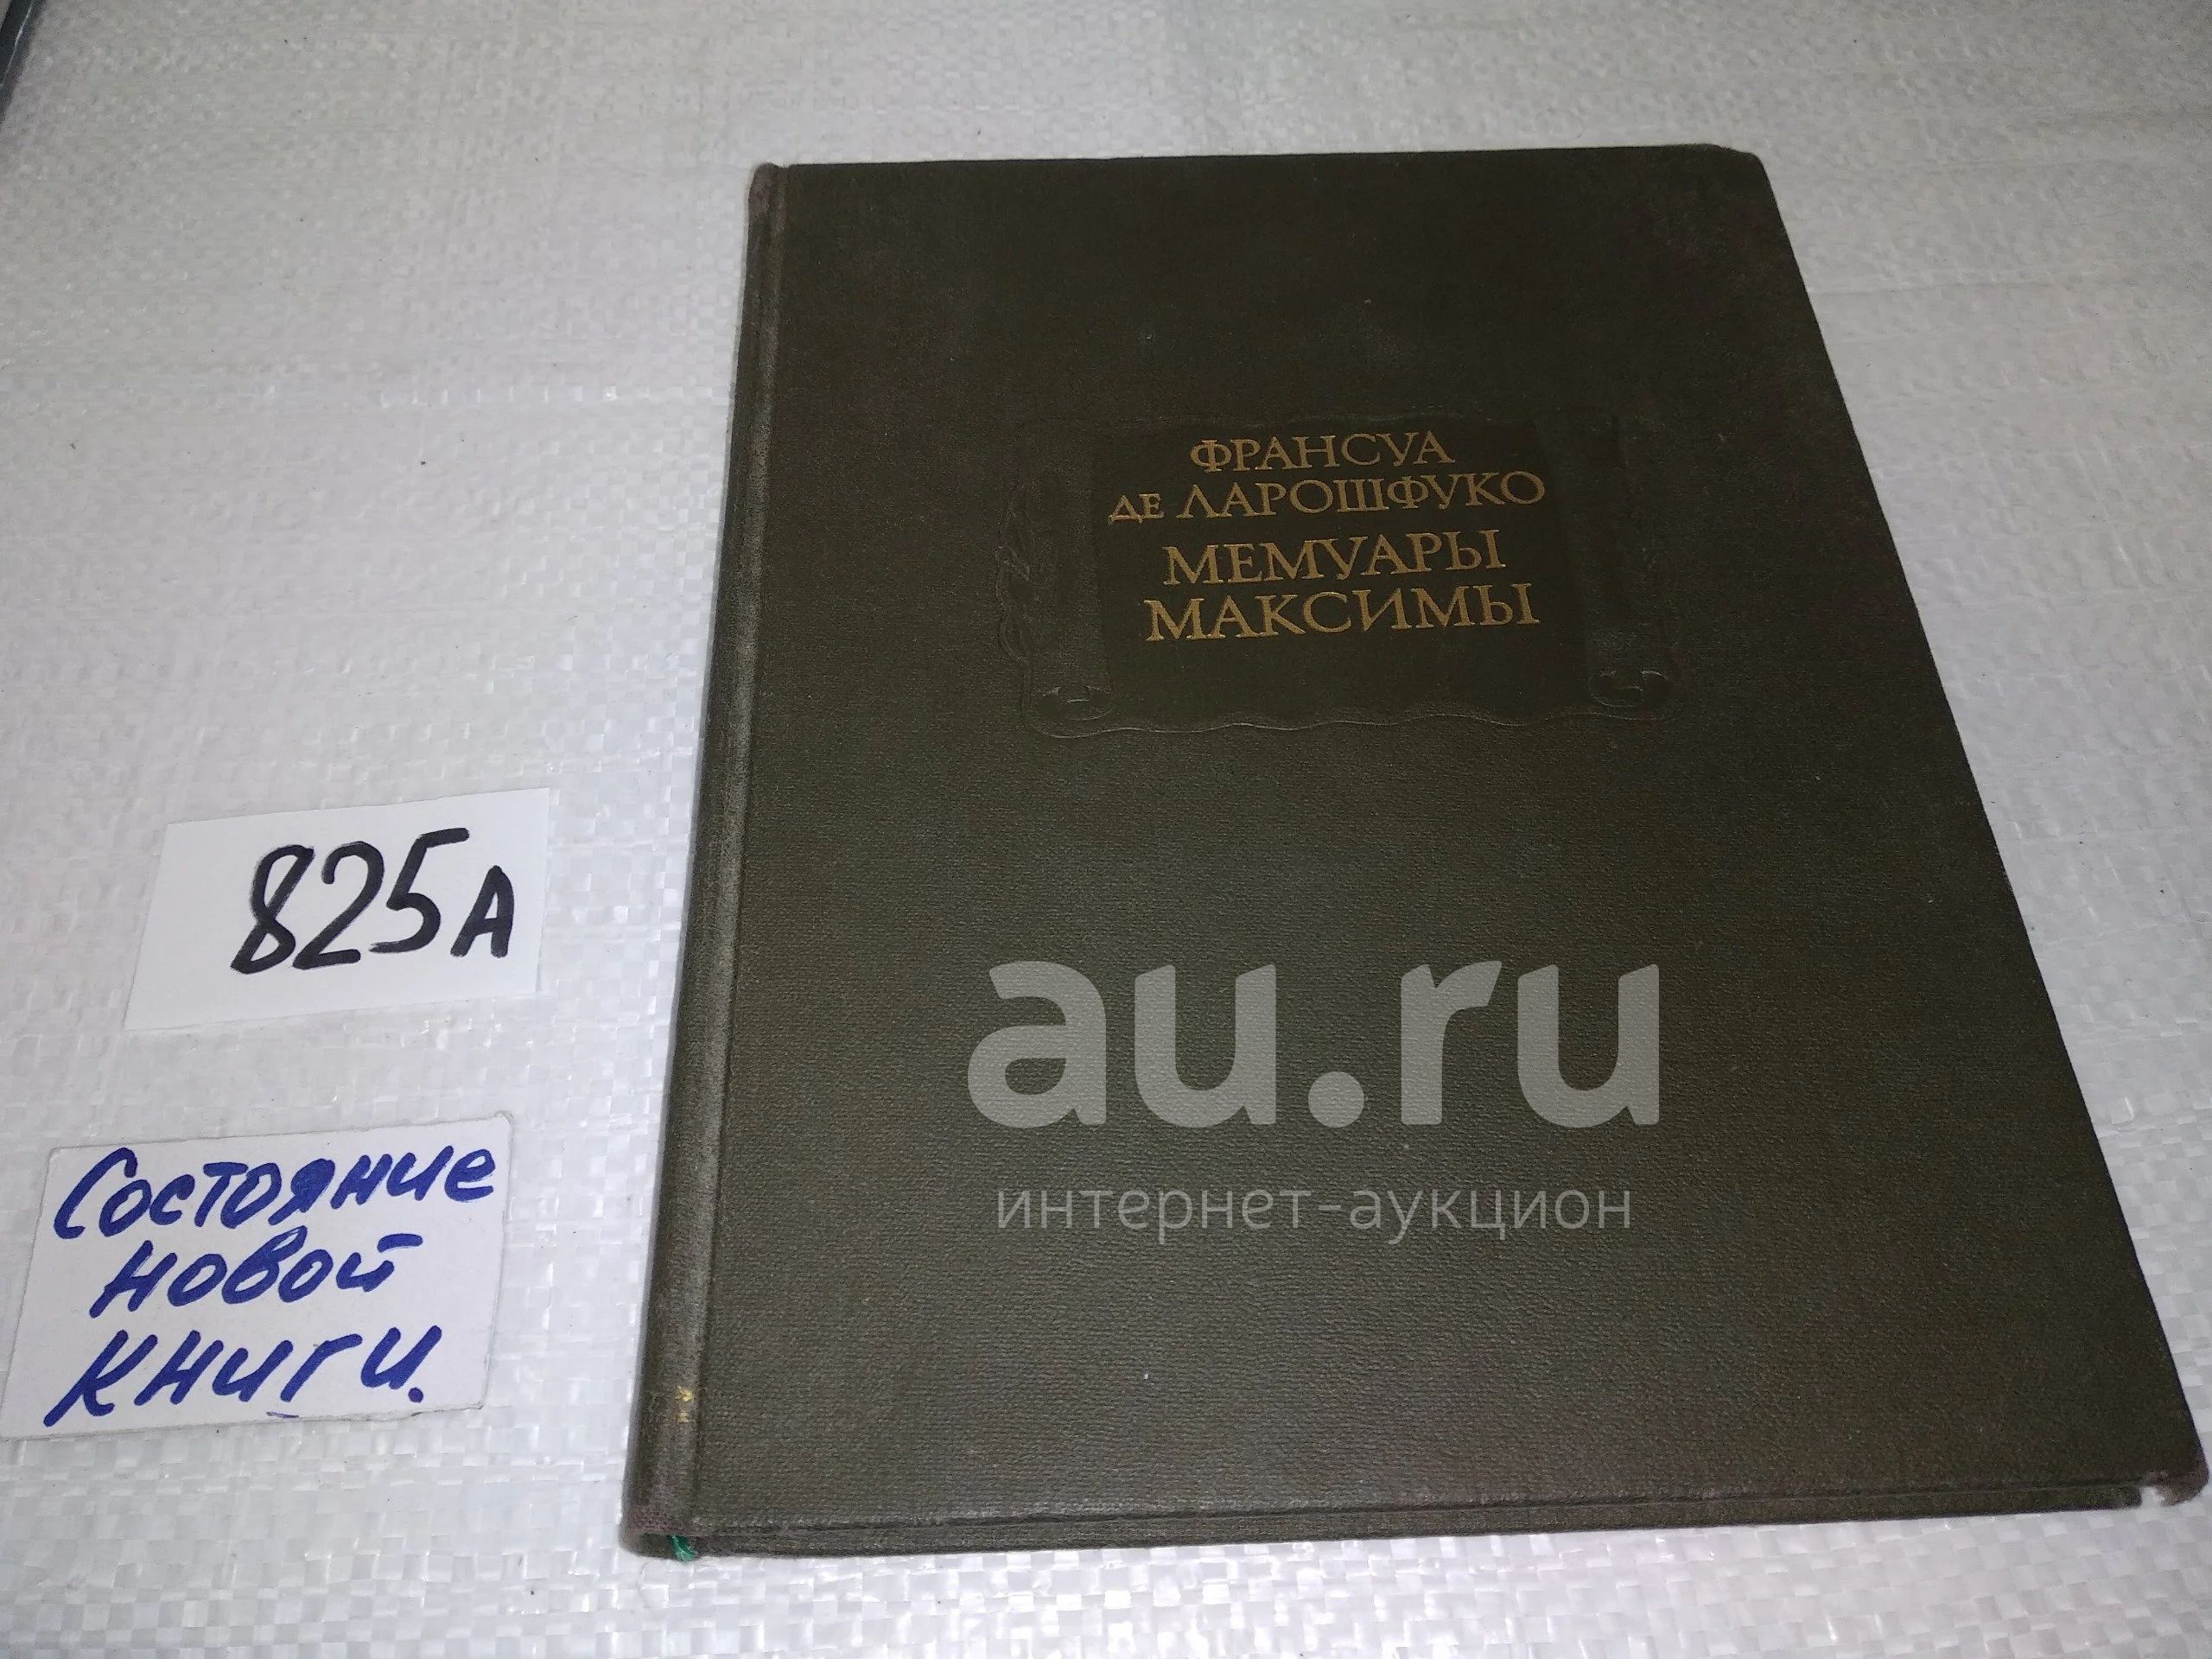 ФРАНСУА
ДЕ ЛАРОШФУКО
МЕМУАРЫ
МАКСИМЫ
825А
Состояние
новой
книги.
au.ru
интернет-аукцион